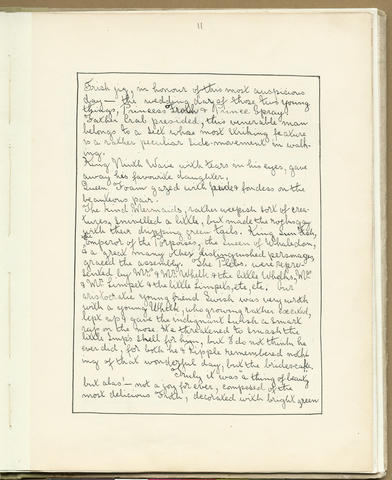 11
Irish jig, in honour of this most auspicious
day — the wedding day of those two young
things, Princess Froth & Prince Spray.
Father Crab presided, this venerable man
belongs to a sect whose most striking feature
is a rather peculiar side-movement in walk-
ing.
King Ninth Wave with tears in his eyes, gave
away his favourite daughter,
Queen Foam gazed with pride & fondness on the
beauteous pair.
The kind Mermaids, rather weepish sort of crea-
tures, snivelled a little, but made the
with their dripping green tails. King Sun-fish,
the Emperor of the Porpoises, the Queen of Whaledom,
& a great many other distinguished personages
graced the assembly. The were repre-
sented by Mr. & Mrs. Whelk & the little Whelks, Mr.
& Mrs. Limpet & the little Limpets, etc, etc. Our
aristocratic young friend Swish was very wroth
with a young Whelk, who growing rather excited,
lept up & gave the indignant a smart
rap on the nose. He threatened to smash the
little Imp's shell for him, but I do not think he
ever did, for both he & Ripple remembered noth-
ing of that wonderful day, but the bridescake.
Truly it was "a thing of beauty"
but alas! — not a joy for ever, composed of the
most delicious Froth, decorated with bright green